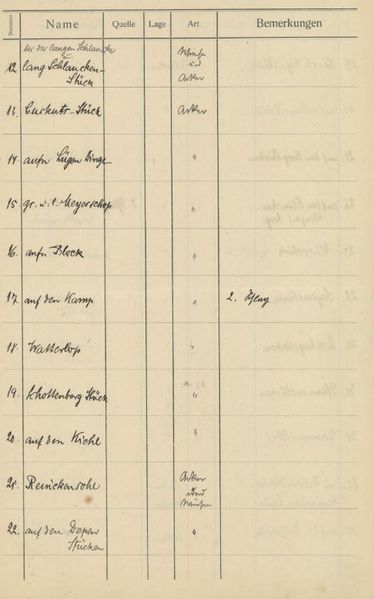 Nummer Name Quelle Lage Art Bemerkungen
bei der langen Schlancke
12. lang Schlancken-
Stück
und
Acker
13. Cuckuts-Stück Acker
14. aufm Lügen Dinge "
15. gr. u. l. Meyerschop "
16. aufm Block "
17. auf den Kamp " 2.
18. Watterlop "
19. Schottenberg Stück "
20. auf den Kiehl "
21. Reinckensohl Acker
und
22. auf den Depen "
Stücken